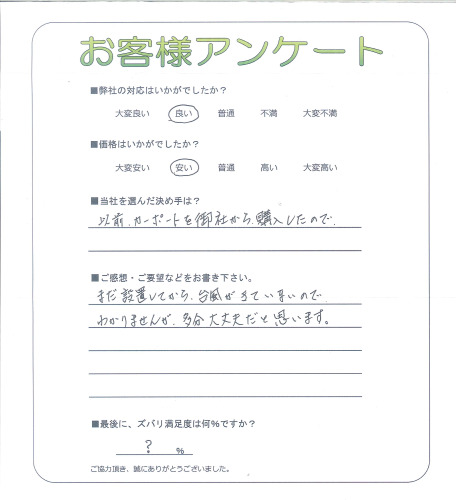 お客様アンケート
■弊社の対応はいかがでしたか?
大変良い 良い 普通 不満 大変不満
■価格はいかがでしたか?
大変安い 安い 普通 高い 大変高い
■当社を選んだ決め手は?
以前、カーポートを御社から、購入したので、
■ご感想・ご要望などをお書き下さい。
まだ設置してから、台風がきていないので
わかりませんが、多分大丈夫だと思います。
■最後に、ズバリ満足度は何%ですか?
? %
ご協力頂き、誠にありがとうございました。